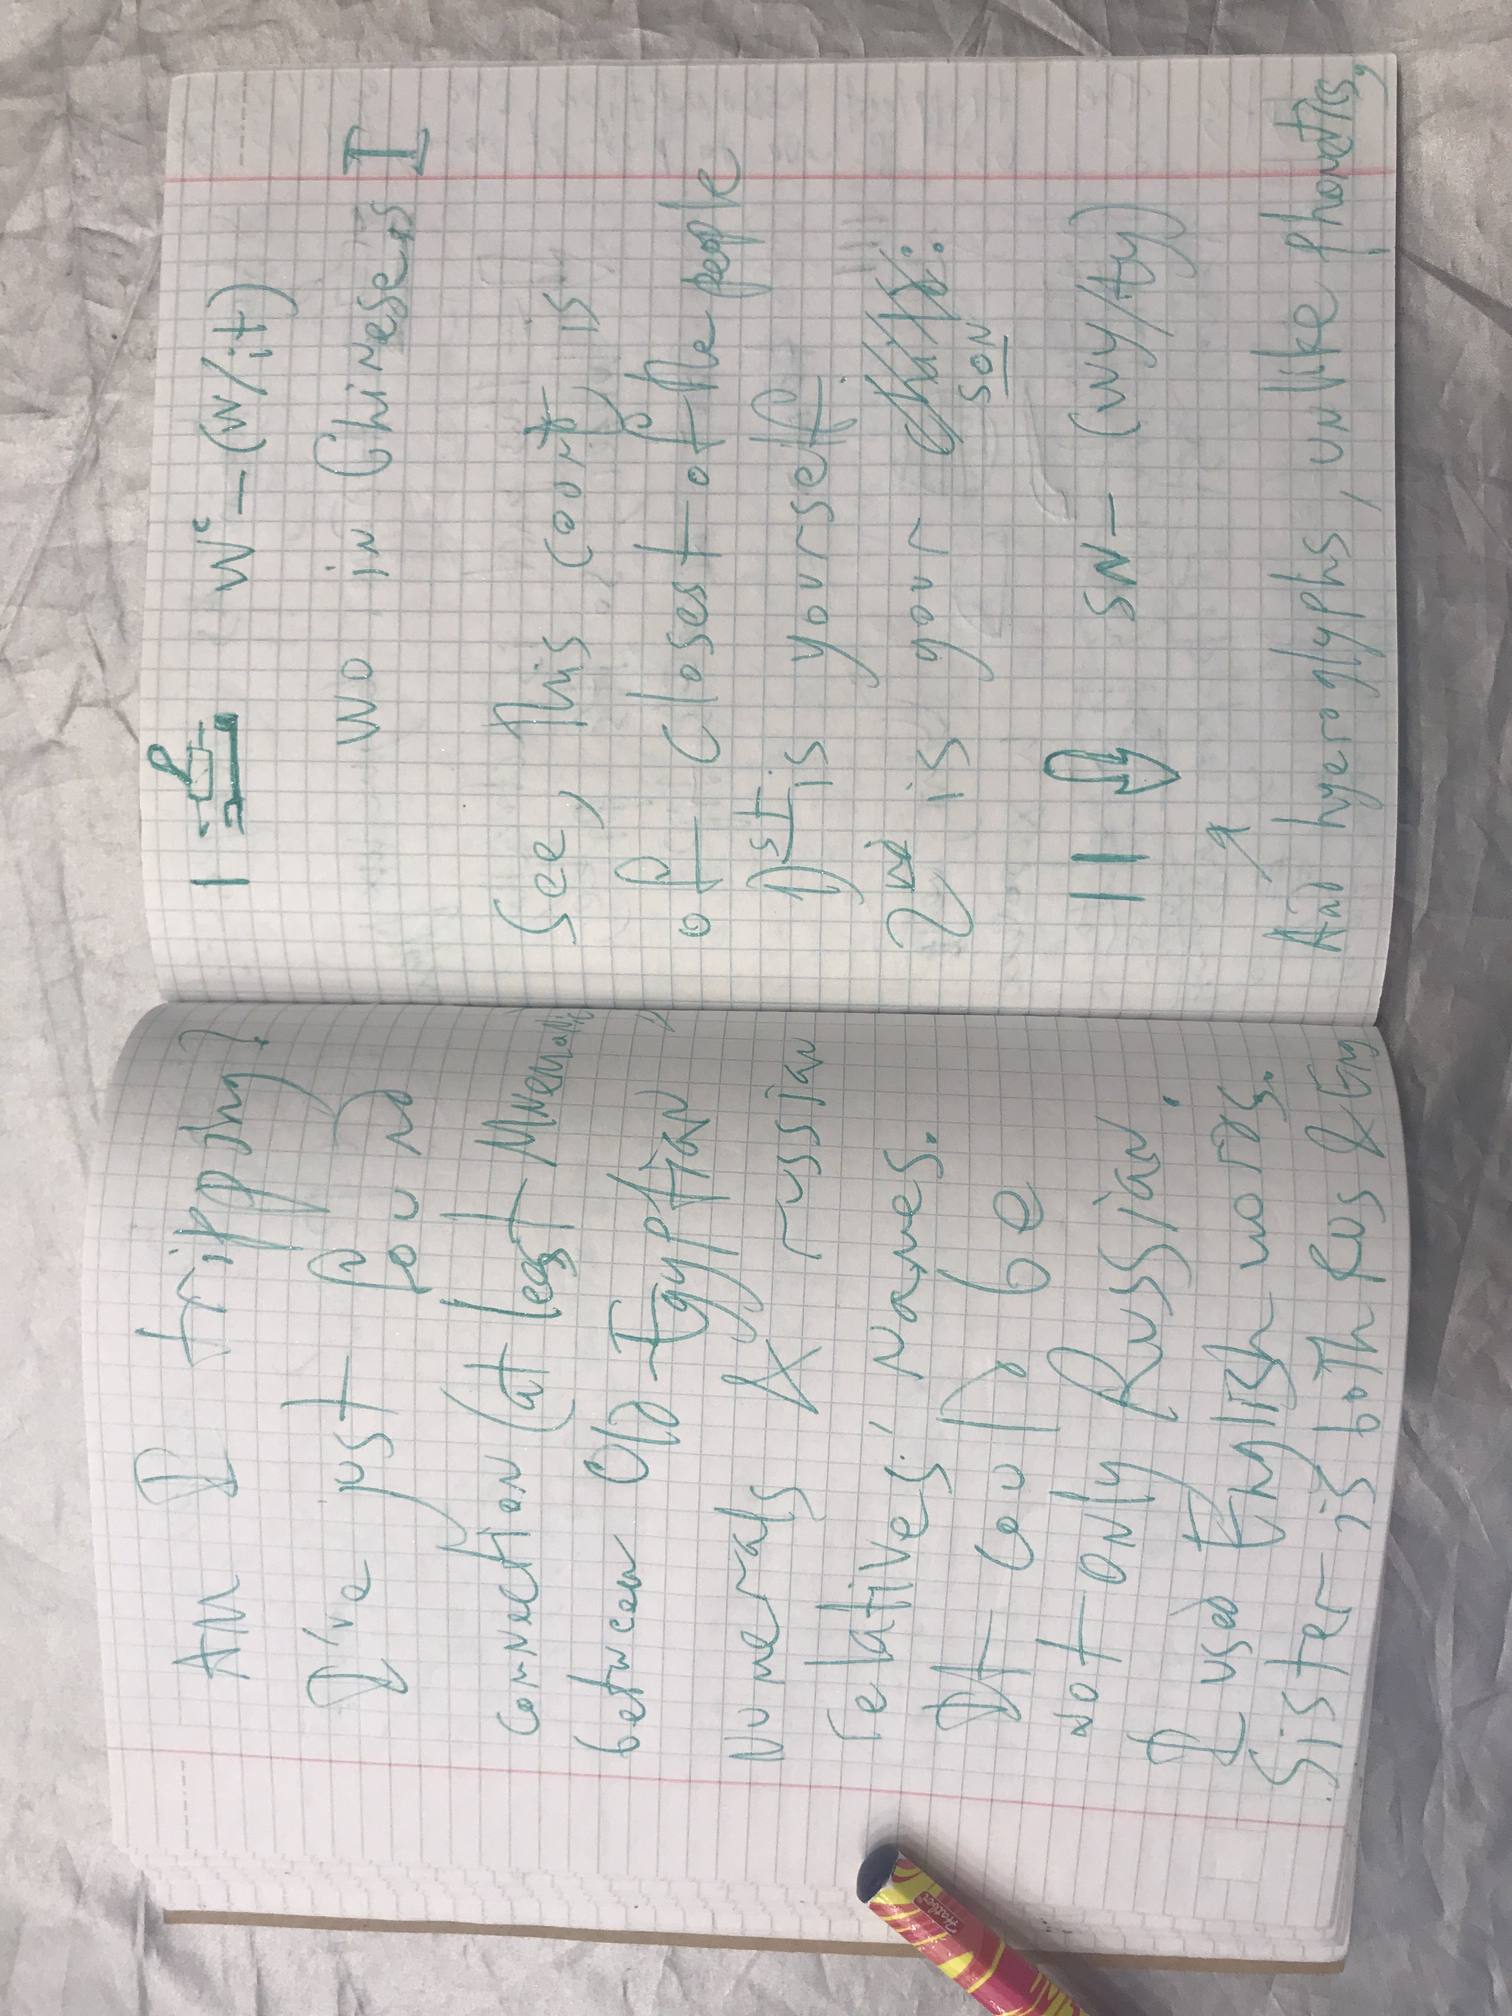 AM I tripping?
I've just found
connection (at least Mnematic
between Old-Egyptian
Numerals & russian
relatives' Names.
It coul'd be
not only Russian:
I used English words.
Sister is both Rus & Eng
I wᶜ – (w/it)
wo in Chinese is I
See, this count is
of closest of the people
1) st is yourself
2nd is your
son
II SN – (wy/ty)
And hyeroglyphs, unlike phonetics,